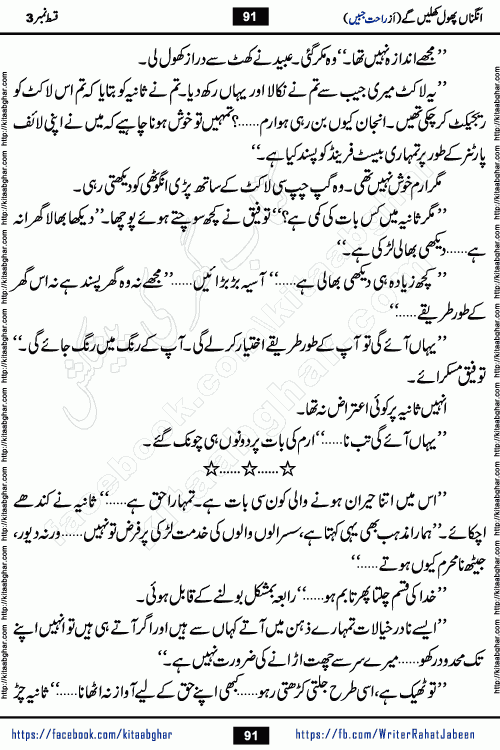 انگناں پھول کھلیں گے (از راحت جبیں)
91
قسط نمبر 3
’’مجھے اندازہ نہیں تھا۔‘‘ وہ مکر گئی۔ عبید نے کھٹ سے دراز کھول لی۔
’’یہ لاکٹ میری جیب سے تم نے نکالا اور یہاں رکھ دیا۔ تم نے ثانیہ کو بتایا کہ تم اس لاکٹ کو
ریجیکٹ کر چکی تھیں۔ انجان کیوں بن رہی ہو ارم......؟ تمہیں تو خوش ہونا چاہیے کہ میں نے اپنی لائف
پارٹنر کے طور پر تمہاری بیسٹ فرینڈ کو پسند کیا ہے۔‘‘
مگر ارم خوش نہیں تھی۔ وہ گپ چپ سی لاکٹ کے ساتھ پڑی انگوٹھی کو دیکھتی رہی۔
’’مگر ثانیہ میں کس بات کی کمی ہے؟‘‘ توفیق نے کچھ سوچتے ہوئے پوچھا۔ ’’دیکھا بھالا گھرانہ
ہے......دیکھی بھالی لڑکی ہے۔‘‘
’’کچھ زیادہ ہی دیکھی بھالی ہے......‘‘ آسیہ بڑبڑائیں...... ’’مجھے نہ وہ گھر پسند ہے نہ اس گھر
کے طور طریقے......‘‘
’’یہاں آئے گی تو آپ کے طور طریقے اختیار کر لے گی۔ آپ کے رنگ میں رنگ جائے گی۔‘‘
توفیق مسکرائے۔
انہیں ثانیہ پر کوئی اعتراض نہ تھا۔
’’یہاں آئے گی تب نا......‘‘ ارم کی بات پر دونوں ہی چونک گئے۔
☆......☆......☆
’’اس میں اتنا حیران ہونے والی کون سی بات ہے۔ تمہارا حق ہے......‘‘ ثانیہ نے کندھے
اچکائے۔ ’’ہمارا مذہب بھی یہی کہتا ہے، سسرالوں والوں کی خدمت لڑکی پر فرض تو نہیں......ورنہ دیور،
جیٹھ نامحرم کیوں ہوتے......‘‘
’’خدا کی قسم چلتا پھرتا بم ہو......‘‘ رابعہ بمشکل بولنے کے قابل ہوئی۔
’’ایسے نادر خیالات تمہارے ذہن میں آتے کہاں سے ہیں اور اگر آتے ہی ہیں تو انہیں اپنے
تک محدود رکھو......میرے سر سے چھت اڑانے کی ضرورت نہیں ہے۔‘‘
’’تو ٹھیک ہے، اسی طرح جلتی کڑھتی رہو......کبھی اپنے حق کے لیے آواز نہ اٹھانا......‘‘ ثانیہ چڑ
https://facebook.com/kitaabghar
91
https://fb.com/WriterRahatJabeen
http://kitaabghar.com
http://kitaabghar.com